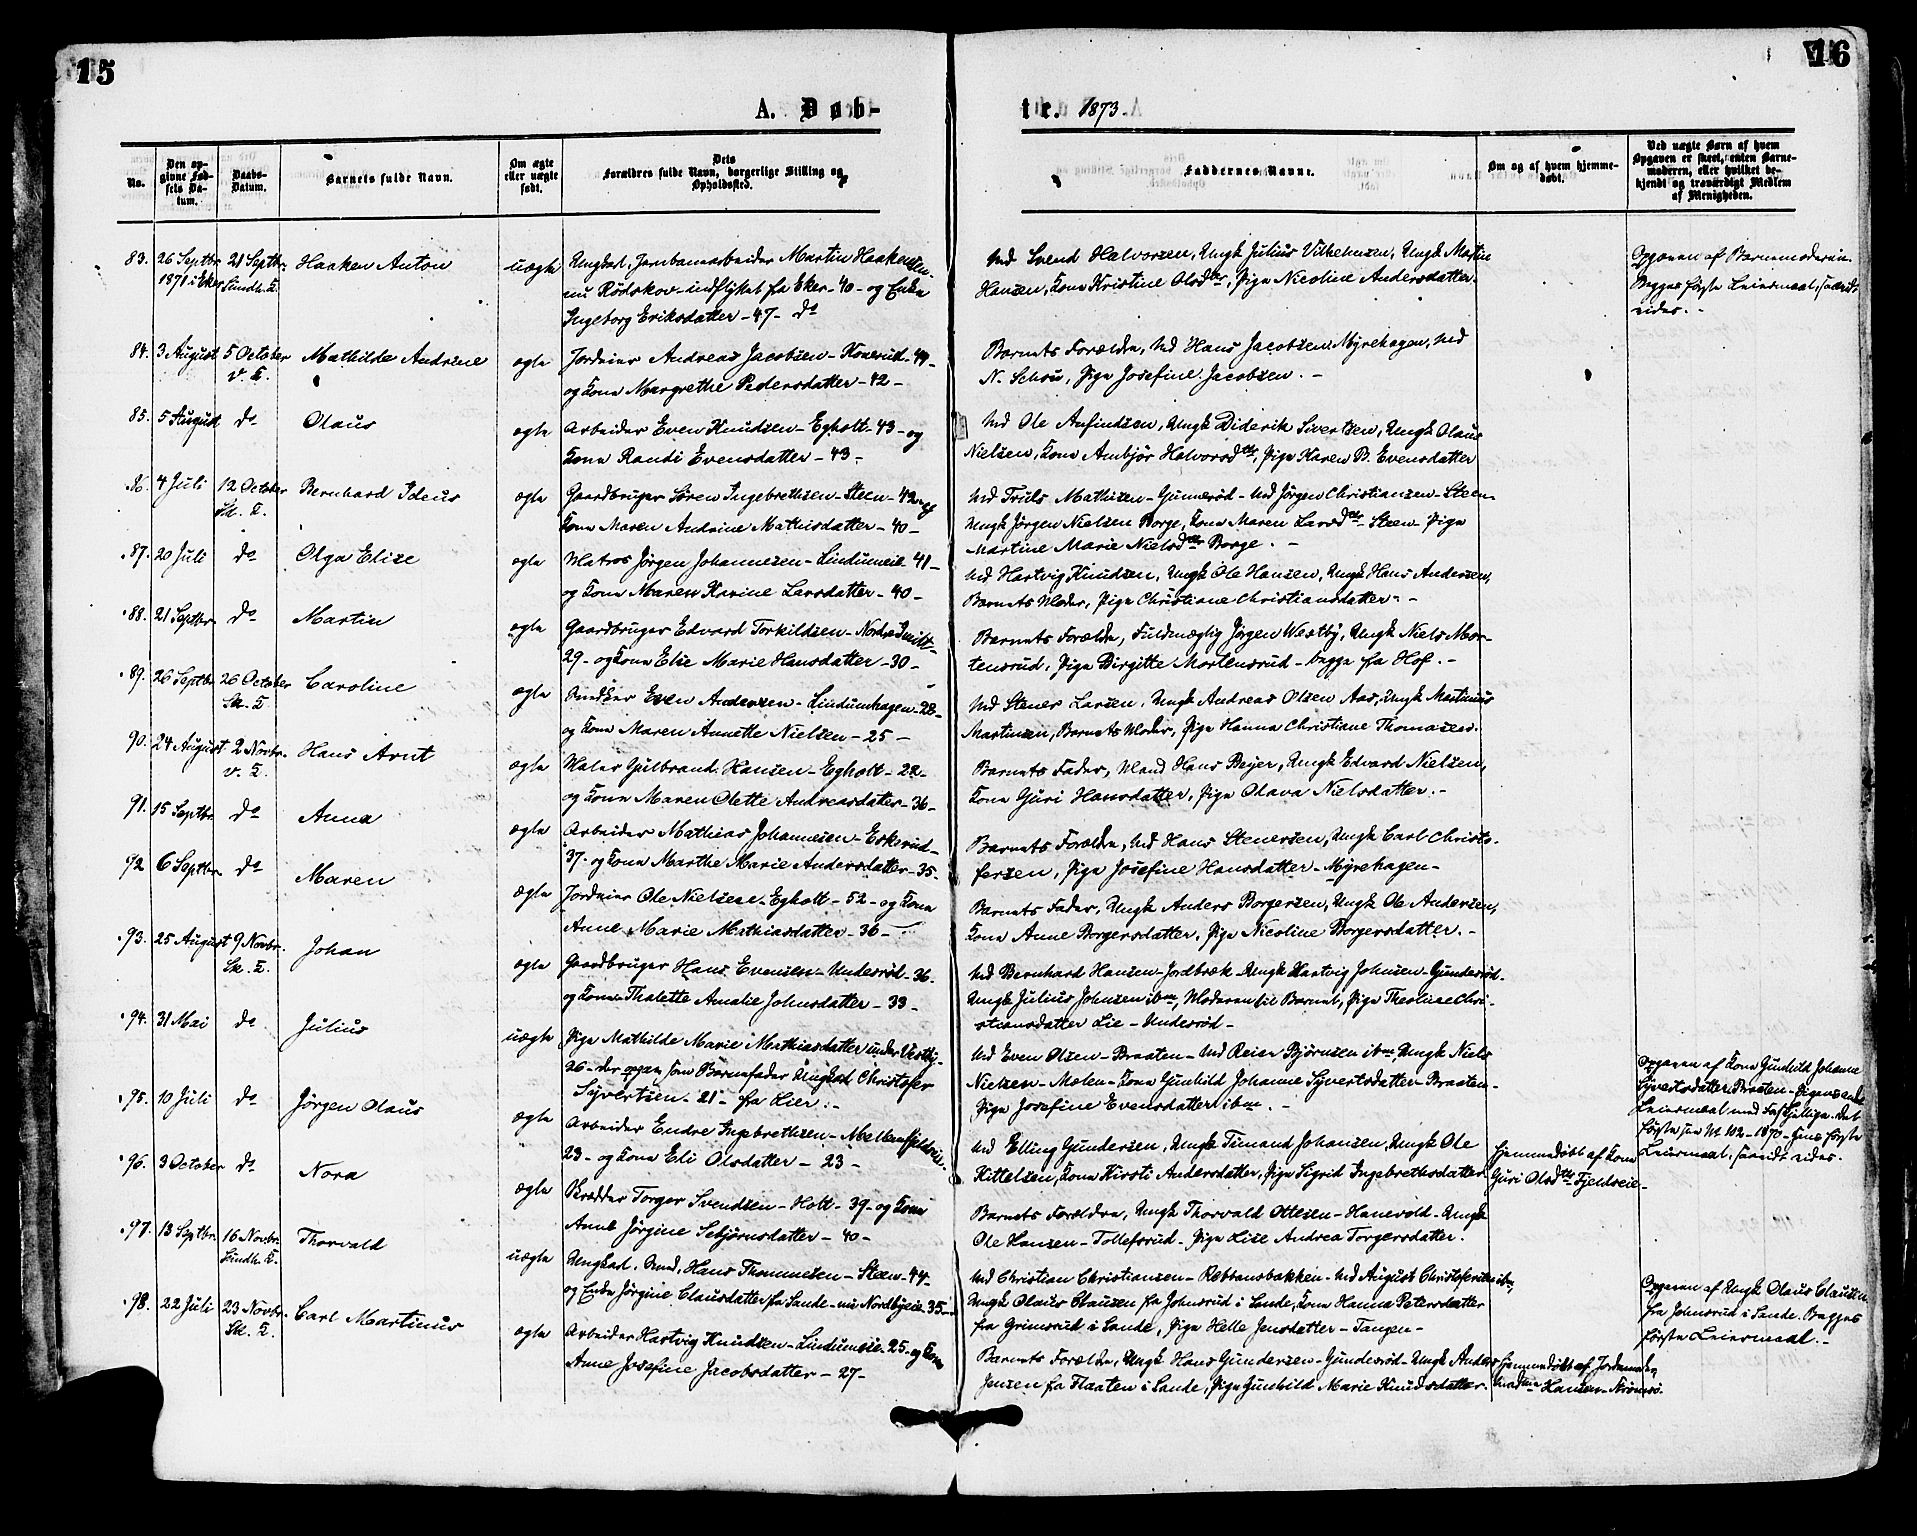 15
16
A. Døb-
te. 1873.
No.
Den op-
givne Fød-
sels Da-
tum.
Daabs-
Datum.
Barnets fulde Navn.
Om ægte
eller uægte
født.
Dets
Forældres fulde Navn, borgerlige Stilling og
Opholdssted.
Faddernes Navne.
Om og af hvem hjemme-
døbt.
Ved uægte Børn af hvem
Opgaven er skeet, enten Barne-
moderen, eller hvilket be-
kjendt og troværdigt Medlem
af Menigheden.
83. 26 Septbr. 21 Septbr. Haaken Anton uægte Ungkarl, Jernbanearbeider Martin Haakensen
1871 i Eker Lindh. K.
nu Rødskov - udflyttet fra Eker - 40 - og Enke
Ingeborg Eriksdatter - 47 - do
Md Svend Halvorsen, Ungk Julius Vilhelmsen, Ungk Martin
Hansen, Kone Kristine Olsdtr, Pige Nicoline Andersdatter.
Opgaven af Barnemoderen.
Begges første Leiermaal, saavidt
vides. -
84. 3 August 5 October Mathilde Andrine ægte Jordeier Andreas Jacobsen - Konerud - 44 -
v. K.
og Kone Margrethe Pedersdatter - 42 -
Barnets Forældre, Md Hans Jacobsen Myrehagen, Md
N. Schou, Pige Josefine Jacobsen. -
85. 5 August do Olaus ægte Arbeider Even Knudsen - Egholt - 43 - og
Kone Randi Evensdatter - 43 -
Md Ole Anfindsen, Ungk Diderik Sivertsen, Ungk Olaus
Nielsen, Kone Ambjør Halvorsdtr, Pige Karen B. Evensdatter
86. 4 Juli 12 October Bernhard Ideus ægte Gaardbruger Søren Ingebrethsen - Steen - 42 og
Sk. K.
Kone Maren Andrine Mathisdatter - 40 -
Md Truls Mathisen - Gunnerød - Md Jørgen Christiansen - Steen -
Ungk Jørgen Nielsen Borge, Kone Maren Larsdtr Steen - Pige
Martine Marie Nielsdtr Borge. -
87. 20 Juli do Olga Elise ægte Matros Jørgen Johannesen - Lindumeie - 41 -
og Kone Maren Karine Larsdatter - 40 -
Md Hartvig Knudsen, Ungk Ole Hansen, Ungk Hans Andersen,
Barnets Moder, Pige Christiane Christiansdatter - -
88. 21 Septbr. do Martin ægte Gaardbruger Edvard Torkildsen - Nordre Smidt -
29 - og Kone Elie Marie Hansdatter - 30 -
Barnets Forældre, Fuldmægtig Jørgen Westby, Ungk Niels Mor-
tensrud, Pige Birgitte Mortensrud - begge fra Hof. -
89. 26 Septbr. 26 October Caroline ægte Snedker Even Andersen - Lindumhagen - 28 -
Sk. K.
og Kone Maren Annette Nielsen - 25 -
Md Stener Larsen, Ungk Andreas Olsen Aas, Ungk Martinus
Martinsen, Barnets Moder, Pige Hanna Christiane Thomasen.
90. 24 August 2 Novbr. Hans Arnt ægte Maler Gulbrand Hansen - Egholt - 22 -
v. K.
og Kone Maren Olette Andreasdatter - 36 -
Barnets Fader, Mand Hans Beyer, Ungk Edvard Nielsen,
Kone Guri Hansdatter, Pige Olava Nielsdatter. -
91. 15 Septbr do Anna ægte Arbeider Mathias Johannesen - Eskerud -
37 - og Kone Marthe Marie Andersdatter - 35 -
Barnets Forældre, Md Hans Stenersen, Ungk Carl Christo-
fersen, Pige Josefine Hansdatter - Myrehagen -
92 6 Septbr. do Maren ægte Jordeier Ole Nielsen - Egholt - 52 - og Kone
Anne Marie Mathiasdatter - 36 -
Barnets Fader, Ungk Anders Borgersen, Ungk Ole Andersen,
Kone Anne Borgersdatter, Pige Nicoline Borgersdatter. -
93. 25 August 9 Novbr. Johan ægte Gaardbruger Hans Evensen - Underrød - 36 -
Sk. K.
og Kone Thalette Amalie Johnsdatter - 33 -
Md Bernhard Hansen - Jordbræk - Ungk Hartvig Johnsen - Gunderød -
Ungk Julius Johnsen ibm, Moderen til Barnet, Pige Theoline Chri-
stiansdatter Lie - Underrød -
94. 31 Mai do Julius uægte Pige Mathilde Marie Mathiasdatter under Vestby -
26 - der opgav som Barnefader Ungkarl Christofer
Syvertsen - 21 - fra Lier. -
Md Even Olsen - Braaten - Md Reier Bjørnsen ibm, Ungk Niels
Nielsen - Mælen - Kone Gunhild Johanne Syvertsdatter - Braaten -
Pige Josefine Evensdatter ibm. -
Opgaven af Kone Gunhild Johanne
Syvertsdatter Braaten - Pigens andet
Leiermaal med Forskjellige - det
første see No 102 - 1870 - hans første
Leiermaal, saavidt vides.
95. 10 Juli do Jørgen Olaus ægte Arbeider Endre Ingebrethsen - Mellem Fjeldeie -
23 - og Kone Eli Olsdatter - 23 -
Md Elling Gundersen, Ungk Timand Johansen, Ungk Ole
Kittelsen, Kone Kirsti Andersdatter, Pige Sigrid Ingebrethsdatter
Hjemmedøbt af Kone
Guri Olsdtr Fjeldeie -
96. 3 October do Nora ægte Skrædder Torger Svendsen - Holt - 39 - og Kone
Anne Jørgine Sebjørnsdatter - 40 -
Barnets Forældre, Ungk Thorvald Ottesen - Hanevold - Ungk
Ole Hansen - Tollefsrud - Pige Lise Andrea Torgersdatter.
97. 13 Septbr. 16 Novbr. Thorvald uægte Ungkarl, Hans Thommesen - Steen - 44 -
Lindh. K.
og Enke Jørgine Clausdatter fra Sande - nu Nordbyeie - 35 -
Md Christian Christiansen - Røttansbakken - Md August Christofersen ibm,
Ungk Olaus Clausen fra Johnsrud i Sande, Kone Hanna Petersdatter
fra Grimsrud i Sande, Pige Helle Jensdatter - Tangen -
Opgaven af Ungk Olaus Clausen
fra Johnsrud i Sande. Begges
første Leiermaal. -
98. 22 Juli 23 Novbr. Carl Martinus ægte Arbeider Hartvig Knudsen - Lindumeie - 25 - og Kone
Sk. K.
Anne Josefine Jacobsdatter - 27 -
Barnets Forældre, Ungk Hans Gundersen - Gunderød - Ungk Anders
Jensen fra Flaaten i Sande, Pige Gunhild Marie Knudsdatter.
Hjemmedøbt af Jordemoder,
Madme Hansen -